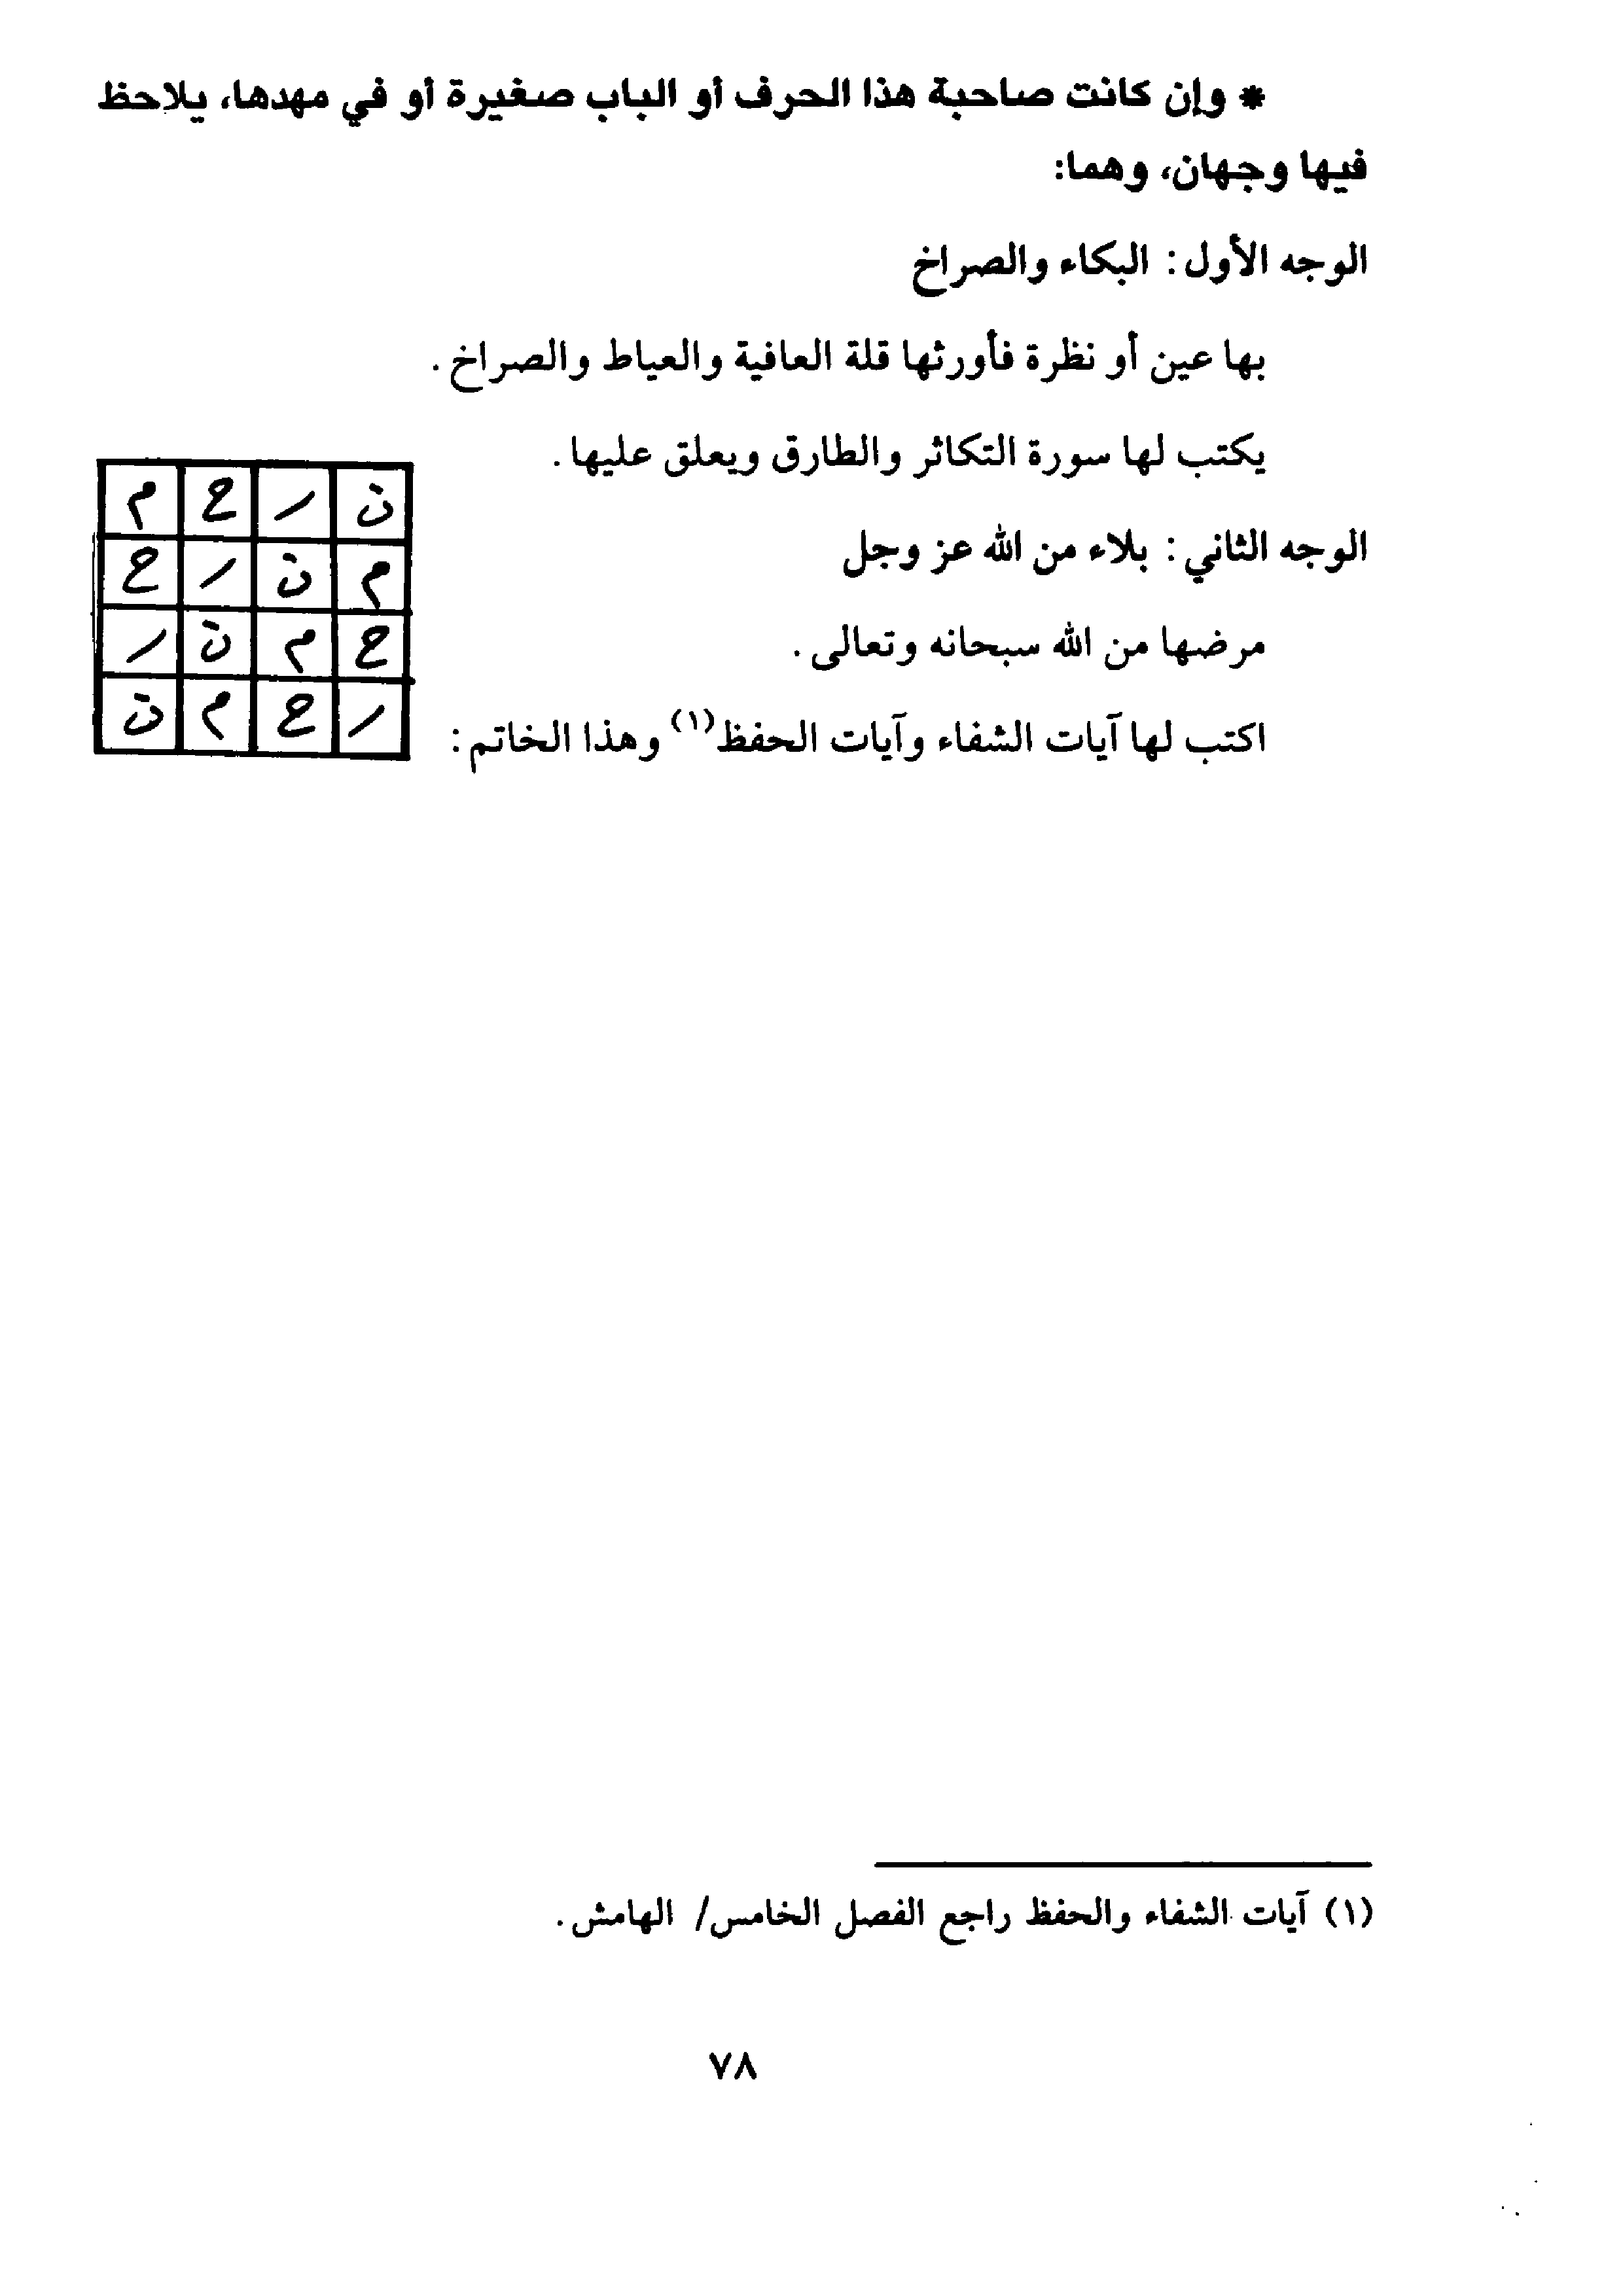 * وإن كانت صاحبة هذا الحرف أو الباب صغيرة أو في مهدها، يلاحظ
فيها وجهان، وهما:
الوجه الأول: البكاء والصراخ
بها عين أو نظرة فأورثها قلة العافية والعياط والصراخ.
يكتب لها سورة التكاثر والطارق ويعلق عليها.
الوجه الثاني: بلاء من الله عز وجل
مرضها من الله سبحانه وتعالى.
اكتب لها آيات الشفاء وآيات الحفظ(١) وهذا الخاتم:
ن ر ح م
م ن ر ح
ح م ن ر
ر ح م ن
(١) آيات الشفاء والحفظ راجع الفصل الخامس/ الهامش.
٧٨